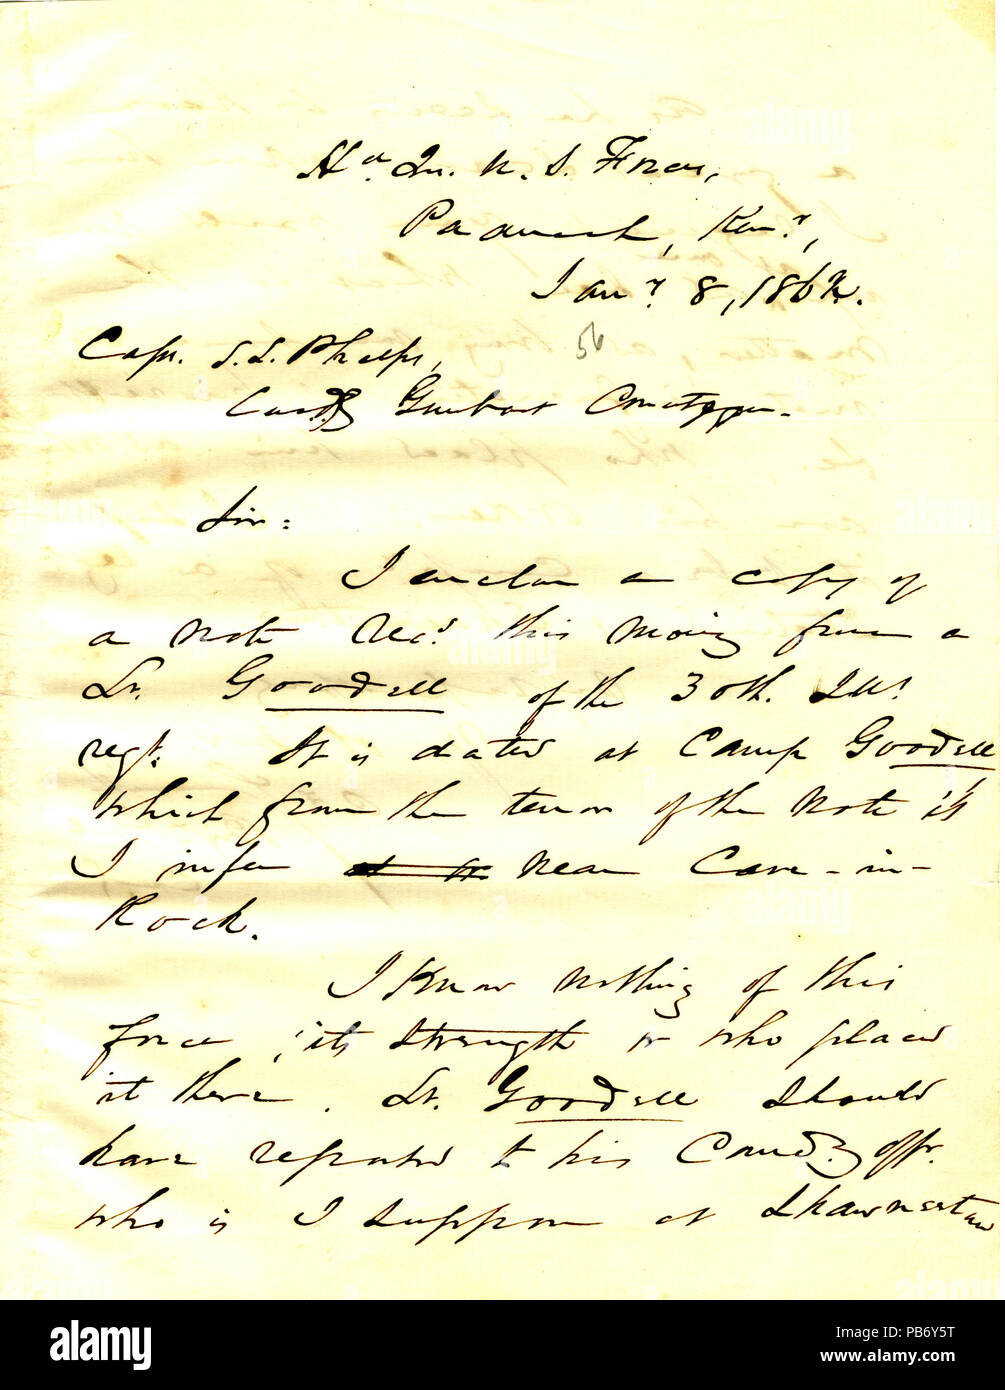 Hd. Qu. U. S. Forces,
Paducah, Ken.y,
Jan.y 8, 1862.
56
Capt. S. L. Phelps,
Comdg Gunboat Conestoga.
Sir:
I enclose a copy of
a note rec.d this morning from a
Lt. Goodell of the 30th. Ill.s
regt. It is dated at Camp Goodell
which from the tenor of the note is
I infer near Cave-in-
Rock.
I know nothing of this
force, its strength or who placed
it there. Lt. Goodell should
have reported to his Comdg offr.
who is I suppose at Shawneetown
alamy
Image ID: PB6Y5T
www.alamy.com